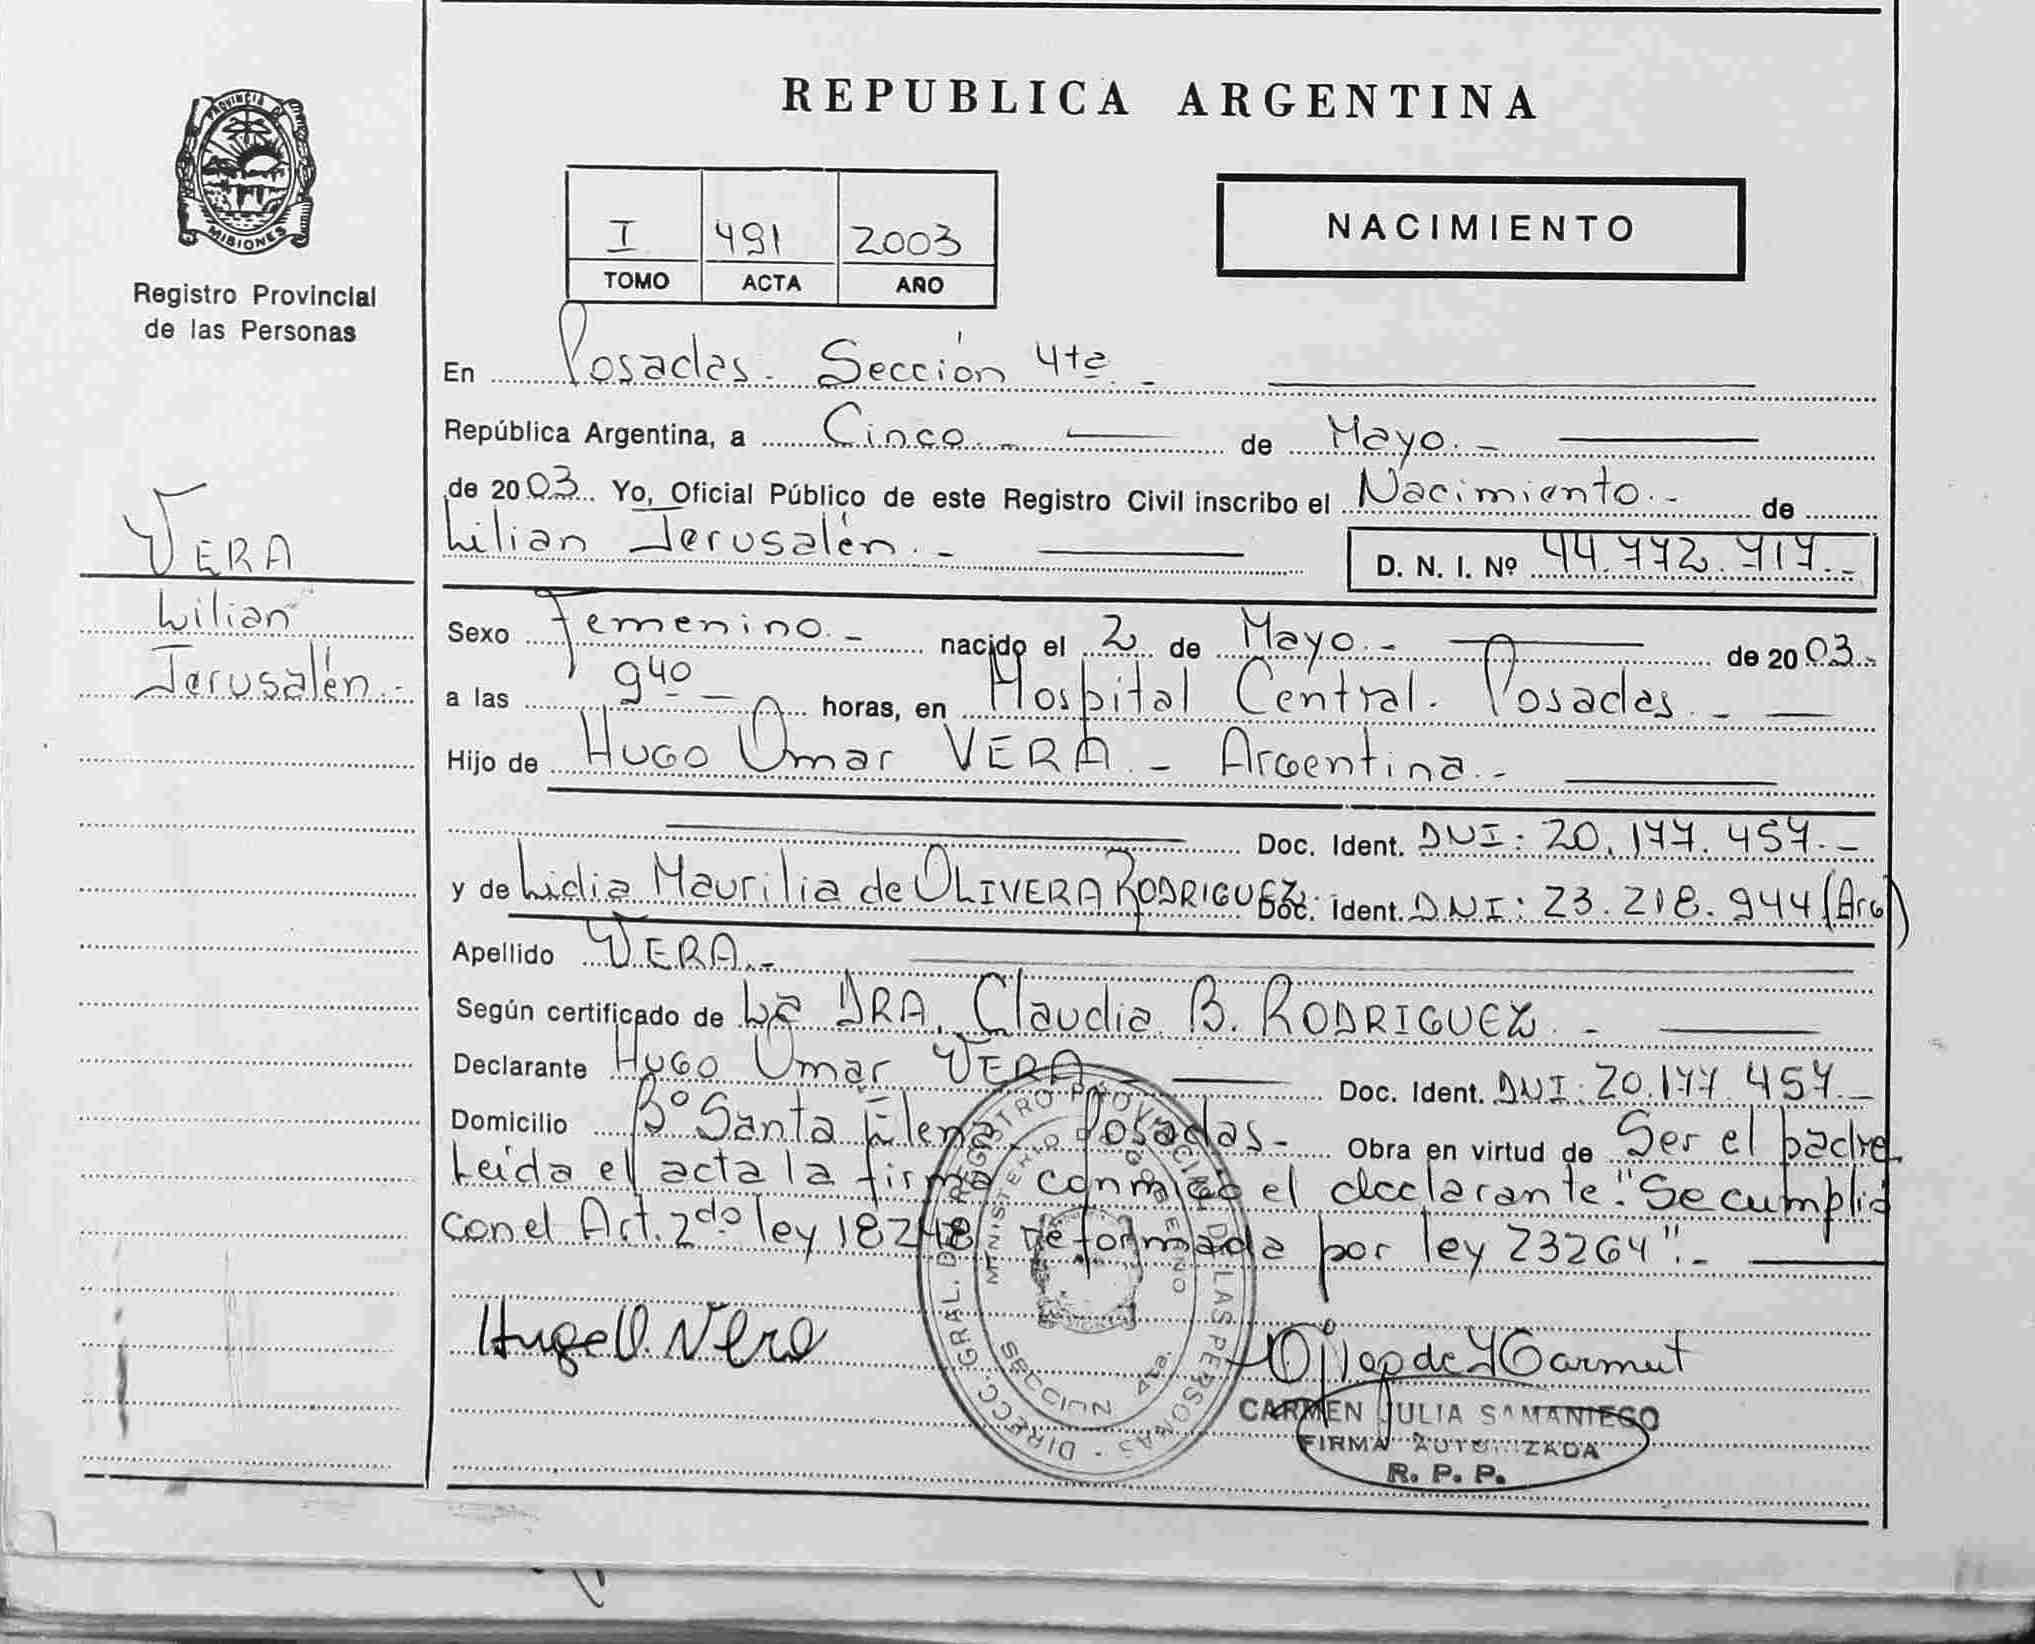 REPUBLICA ARGENTINA
PROVINCIA DE
MISIONES
Registro Provincial
de las Personas
I 491 2003
TOMO ACTA AÑO
NACIMIENTO
En Posadas. Sección 4ta. -
República Argentina, a Cinco. - de Mayo. -
de 2003. Yo, Oficial Público de este Registro Civil inscribo el Nacimiento. - de
Lilian Jerusalén. - D. N. I. Nº 44.772.717. -
VERA
Lilian
Jerusalén. -
Sexo Femenino. - nacido el 2 de Mayo. - de 2003. -
a las 9 40 - horas, en Hospital Central. Posadas. -
Hijo de Hugo Omar VERA. - Argentina. -
Doc. Ident. DNI: 20.177.457. -
y de Lidia Maurilia de OLIVERA RODRIGUEZ Doc. Ident. DNI: 23.218.944 (Arg)
Apellido VERA. -
Según certificado de La DRA. Claudia B. RODRIGUEZ. -
Declarante Hugo Omar VERA - Doc. Ident. DNI: 20.177.457. -
Domicilio Bº Santa Elena Posadas - Obra en virtud de Ser el padre.
Leída el acta la firma conmigo el declarante. "Se cumplió
con el Art. 2do ley 18248 reformada por ley 23264". -
Hugo O. Vera
DIRECC. GRAL. DE REGISTRO PROVINCIAL DE LAS PERSONAS
MINISTERIO DE GOBIERNO
SECCION 4ta.
CARMEN JULIA SAMANIEGO
FIRMA AUTORIZADA
R. P. P.